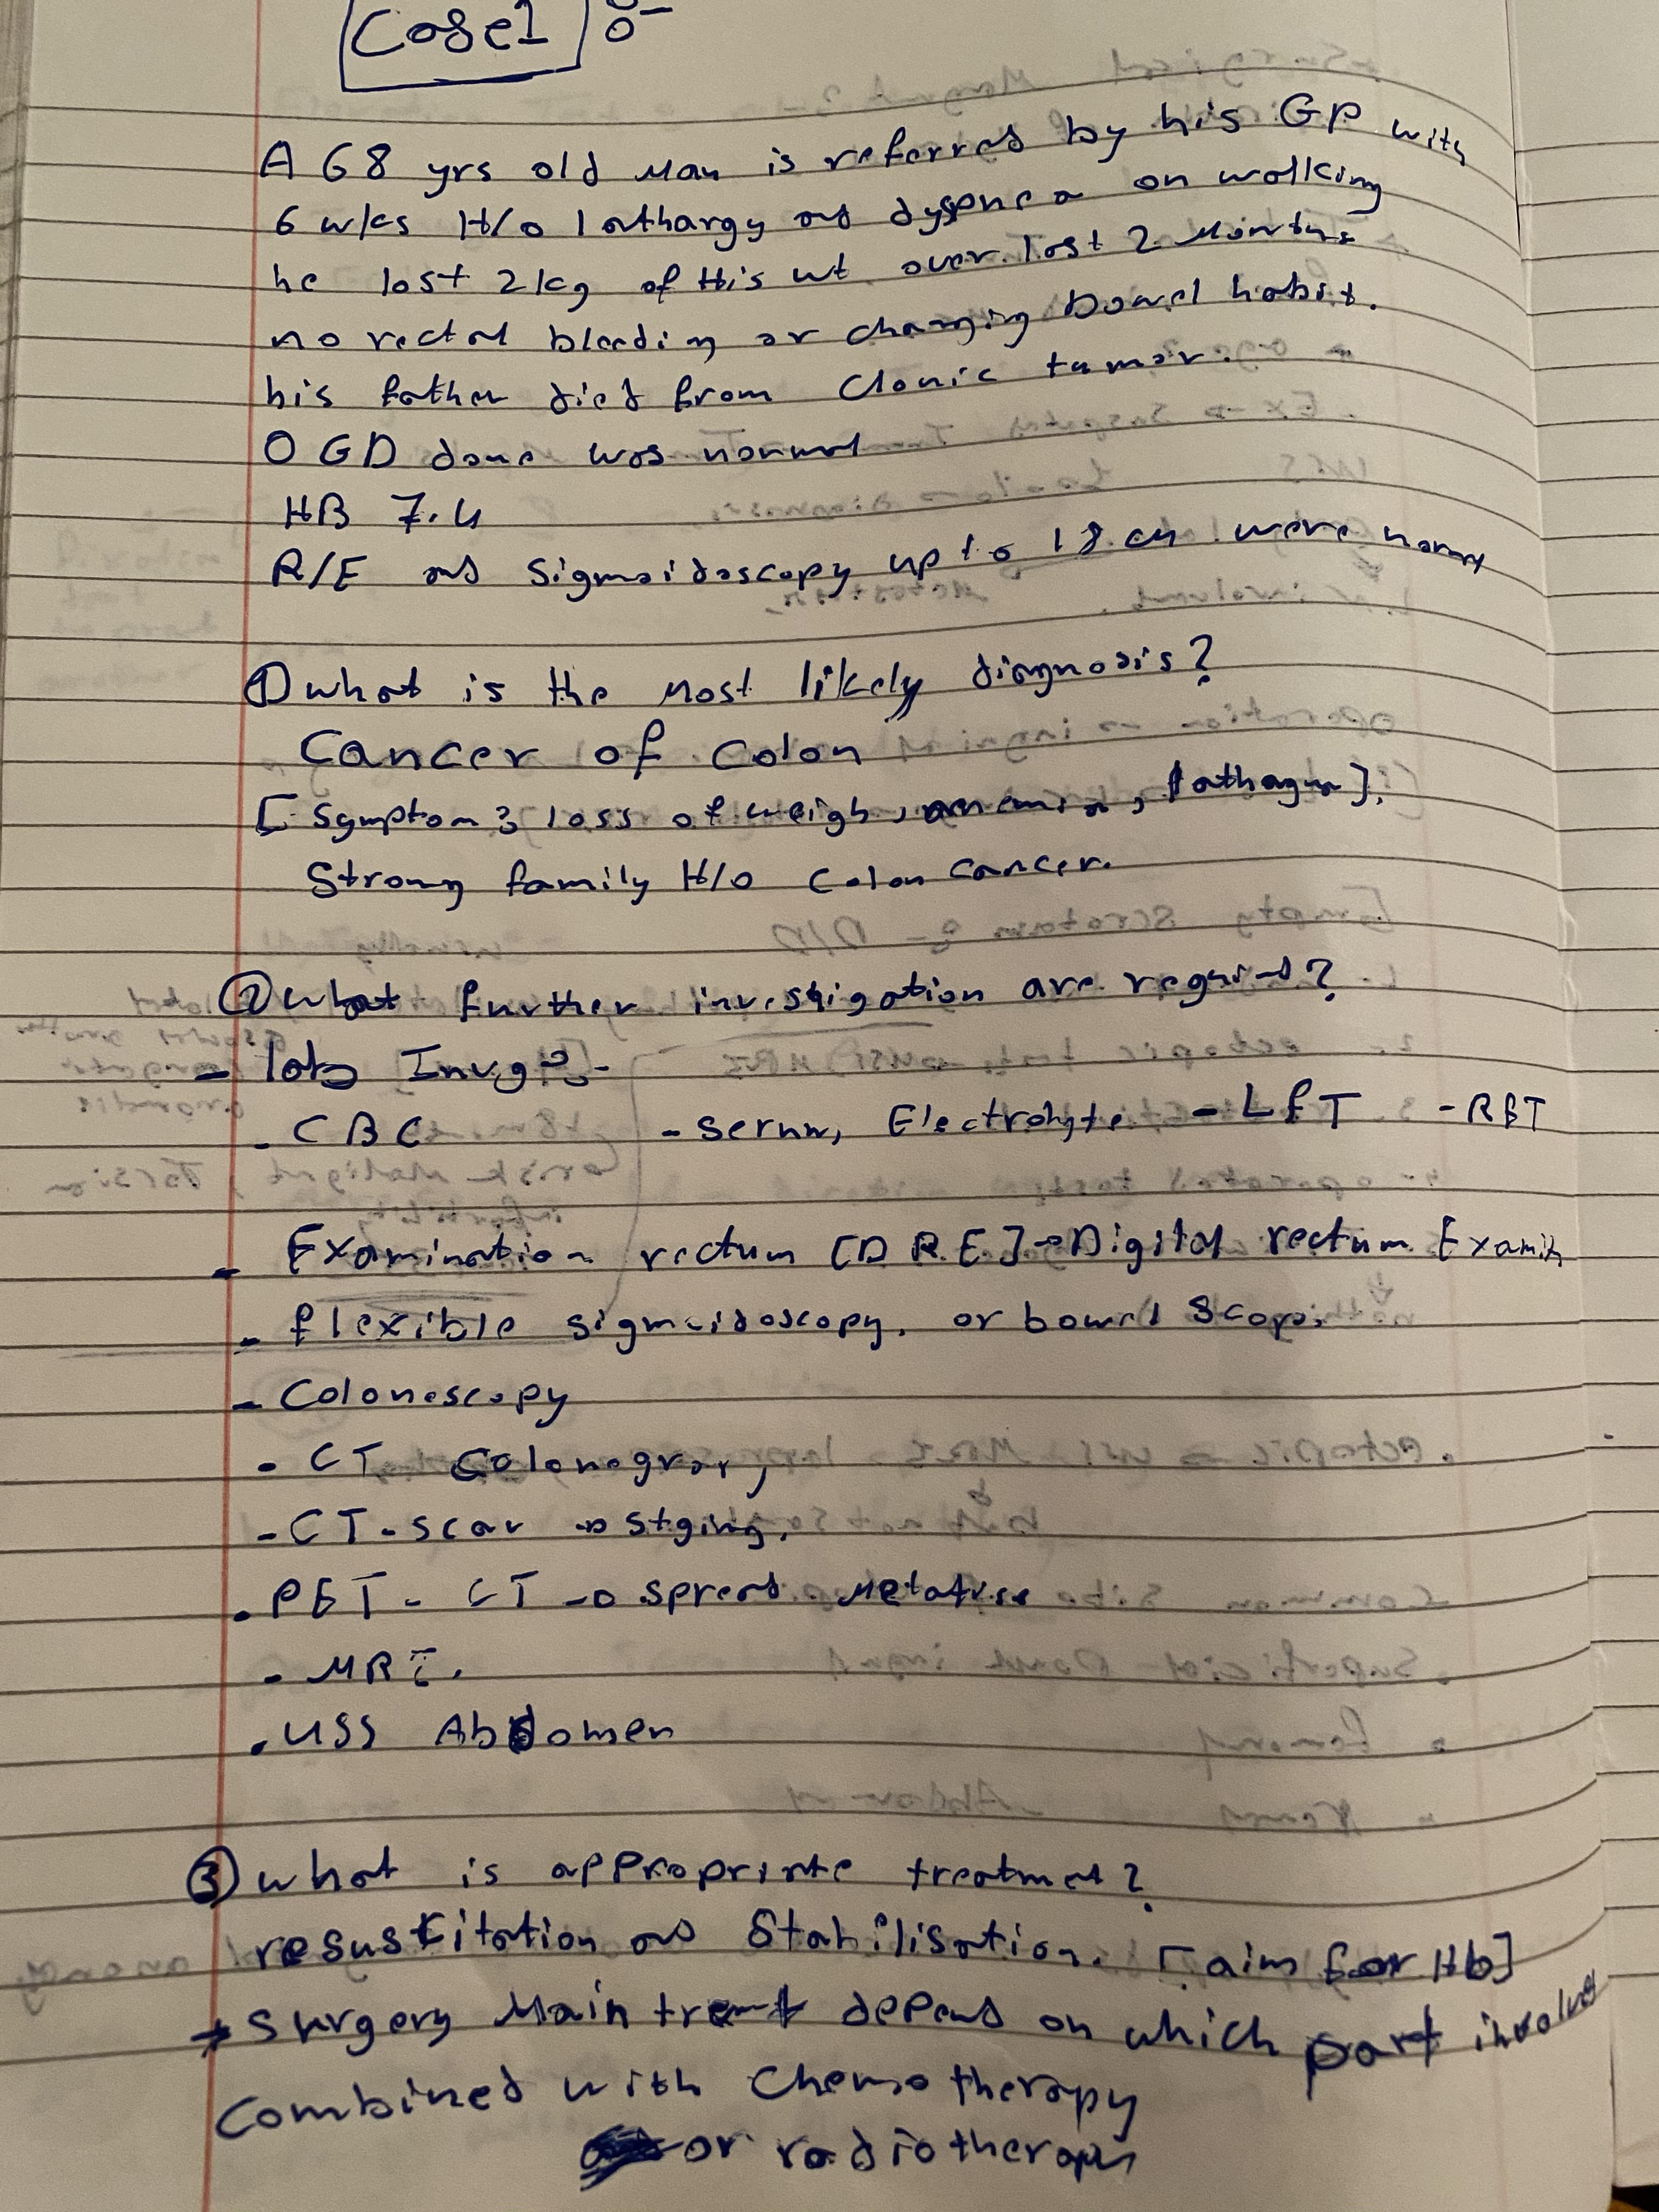 Case1 :-
A 68 yrs old Man is referred by his GP with
6 wks H/o lathargy and dyspnea on walking
he lost 2kg of His wt over last 2 Months
no rectal bleeding or changing bowel habit.
his father died from Clonic tumor.
OGD done was normal
HB 7.4
R/E and Sigmoidoscopy up to 18 cm were normal
① what is the Most likely diagnosis?
Cancer of Colon
[Symptom: loss of weigh, anemia, lathagia],
Strong family H/o Colon cancer.
② what further investigation are requird?
- lab Invg:-
- CBC - serum, Electrolyte - LFT - RFT
- Examination rectum [DRE]→Digital rectum Examin
- flexible sigmoidoscopy. or bowel Scope.
- Colonoscopy
- CT Colonogray
- CT-scan → stging.
. PET - CT → spread
- MRI.
. USS Abdomen
③ what is appropriate treatmet?
resuscitation and Stabilisation. [aim for Hb]
→ Surgery Main depend on which part involved
Combined with Chemotherapy
or radiotherapy